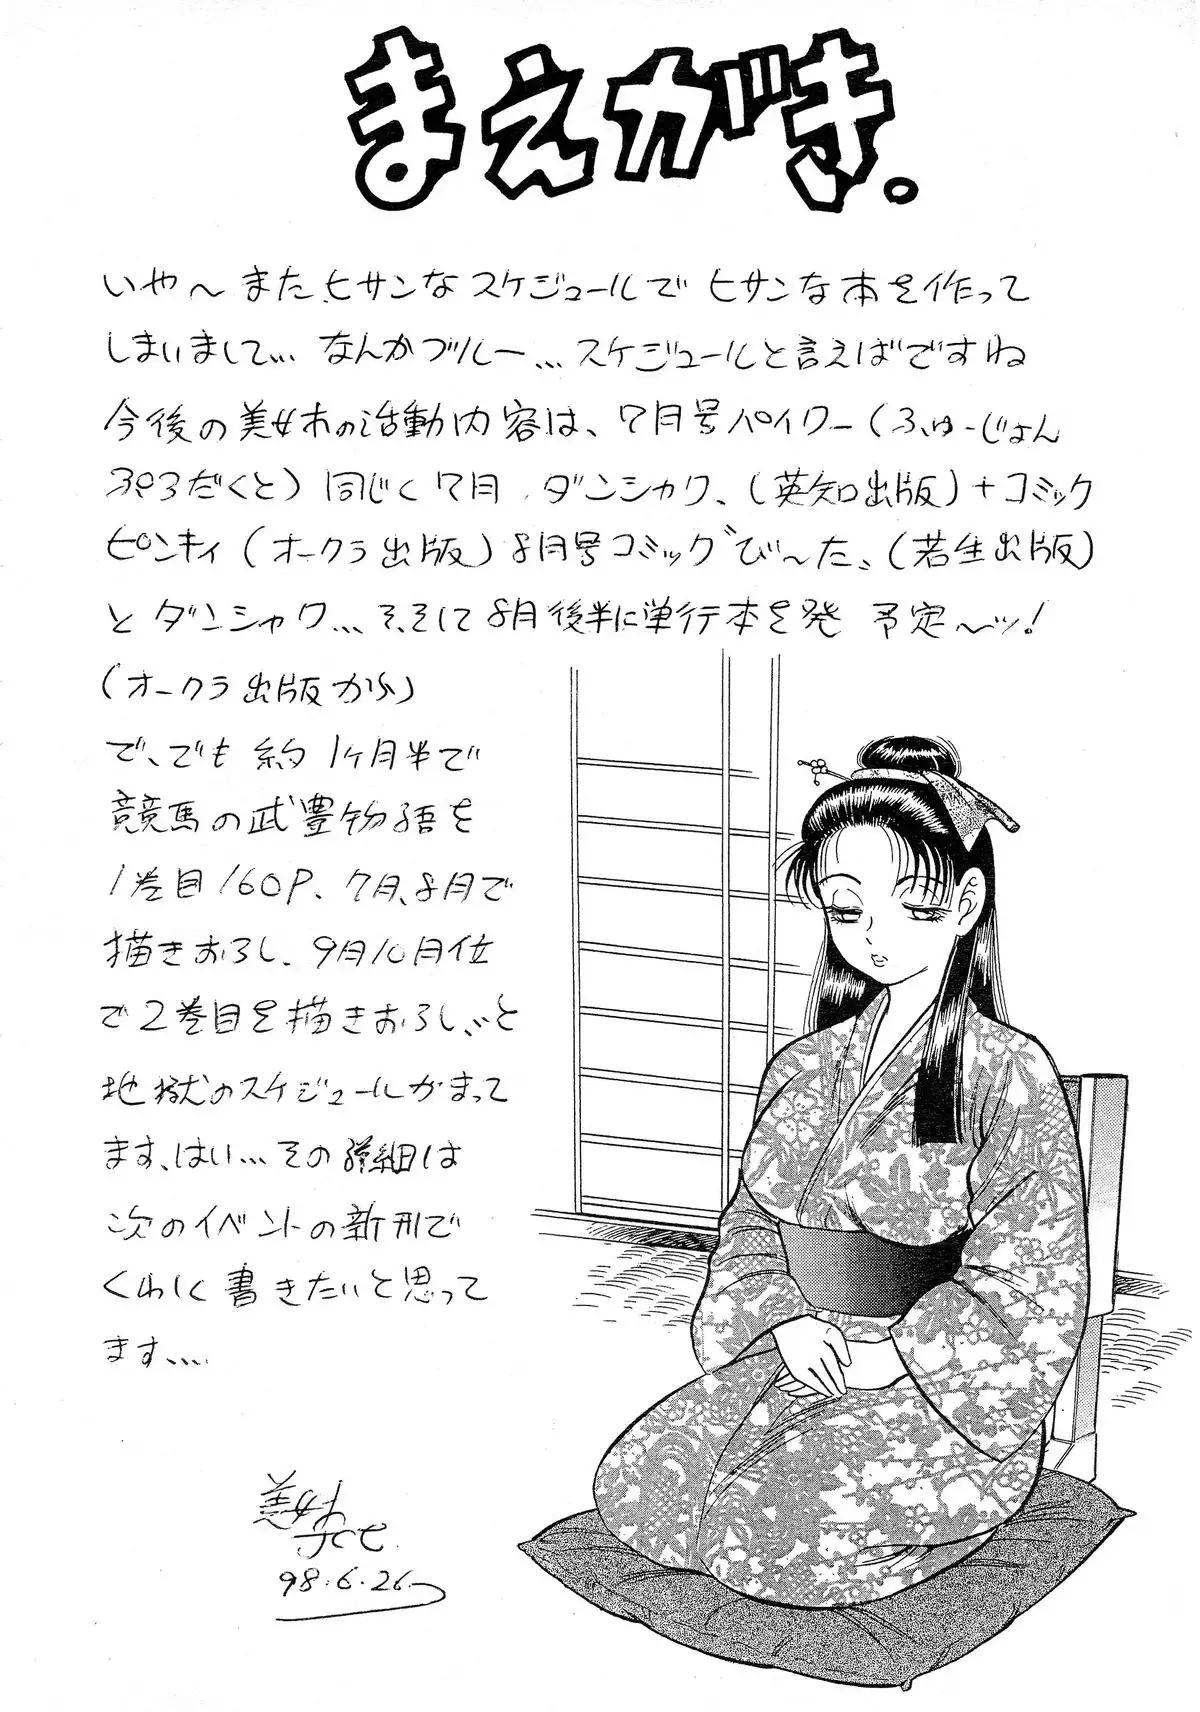 まえがき。
いや〜また、ヒサンなスケジュールでヒサンな本を作って
しまいまして… なんかブルー… スケジュールと言えばですね
今後の美女木の活動内容は、7月号パイワー(ふゅーじょん
ぷろだくと)同じく7月 ダンシャク、(英知出版)+コミック
ピンキィ(オークラ出版)8月号コミックび〜た、(若生出版)
とダンシャク… そ、そして8月後半に単行本を発 予定〜ッ!
(オークラ出版から)
で、でも 約1ヶ月半で
競馬の武豊物語を
1巻目160P、7月、8月で
描きおろし、9月10月位
で2巻目を描きおろし、と
地獄のスケジュールがまって
ます、はい… その詳細は
次のイベントの新刊で
くわしく書きたいと思って
ます…
美女木
98.6.26